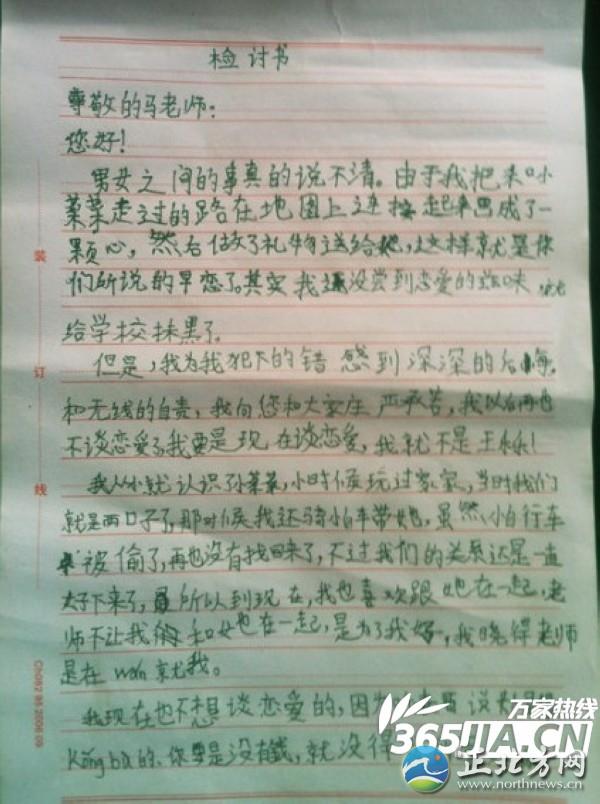 检讨书
尊敬的马老师：
您好！
男女之间的事真的说不清。由于我把和小
菜菜走过的路在地图上连接起来画成了一
颗心，然后做了礼物送给她，这样就是你
们所说的早恋了。其实我还没尝到恋爱的滋味，就
给学校抹黑了。
但是，我为我犯下的错感到深深的后悔，
和无线的自责，我向您和大家庄严承若，我以后再也
不谈恋爱了，我要是现在谈恋爱，我就不是王乐乐！
我从小就认识孙菜菜，小时候玩过家家，当时我们
就是两口子了，那时候我还骑小白车带她，虽然小自行车
被偷了，再也没有找回来了，不过我们的关系还是一直
好下来了，所以到现在，我也喜欢跟她在一起，老
师不让我和她在一起，是为了我好，我晓得老师
是在wǎn就我。
我现在也不想谈恋爱的，因为 说
kǒng bù的，你要是没有钱，就没得
装
订
线
万家热线
365JIA.CN
正北方网
www.northnews.cn